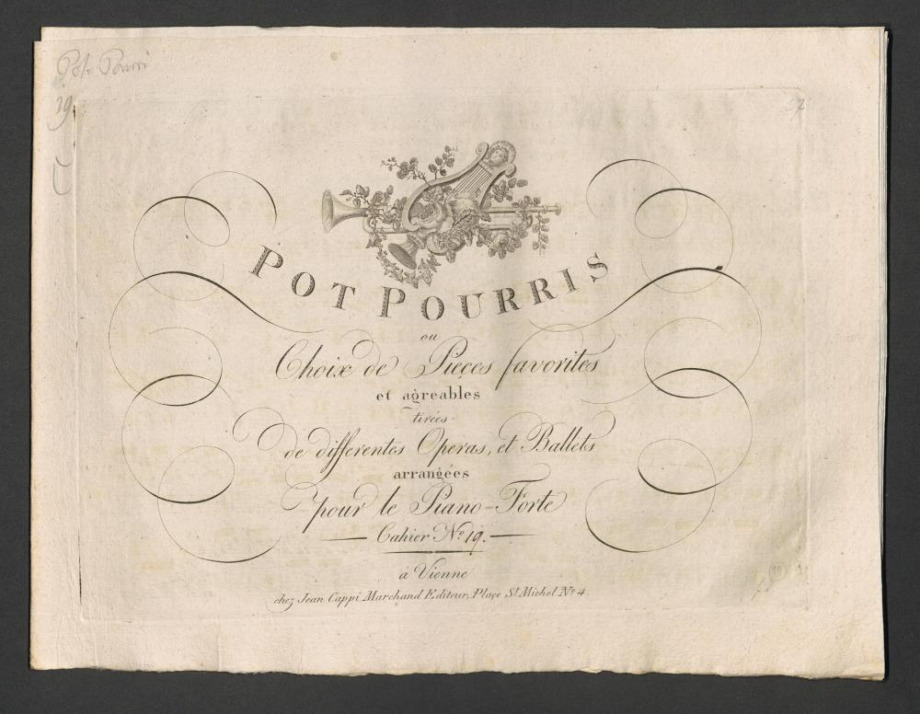 Pot Pourri
19.
POT POURRIS
ou
Choix de Pieçes favorites
et agreables
tirées
de differentes Operas, et Ballets
arrangées
pour le Piano-Forte
Cahier Nº 19.
à Vienne
chez Jean Cappi Marchand Editeur, Plaçe St. Michel Nº 4.